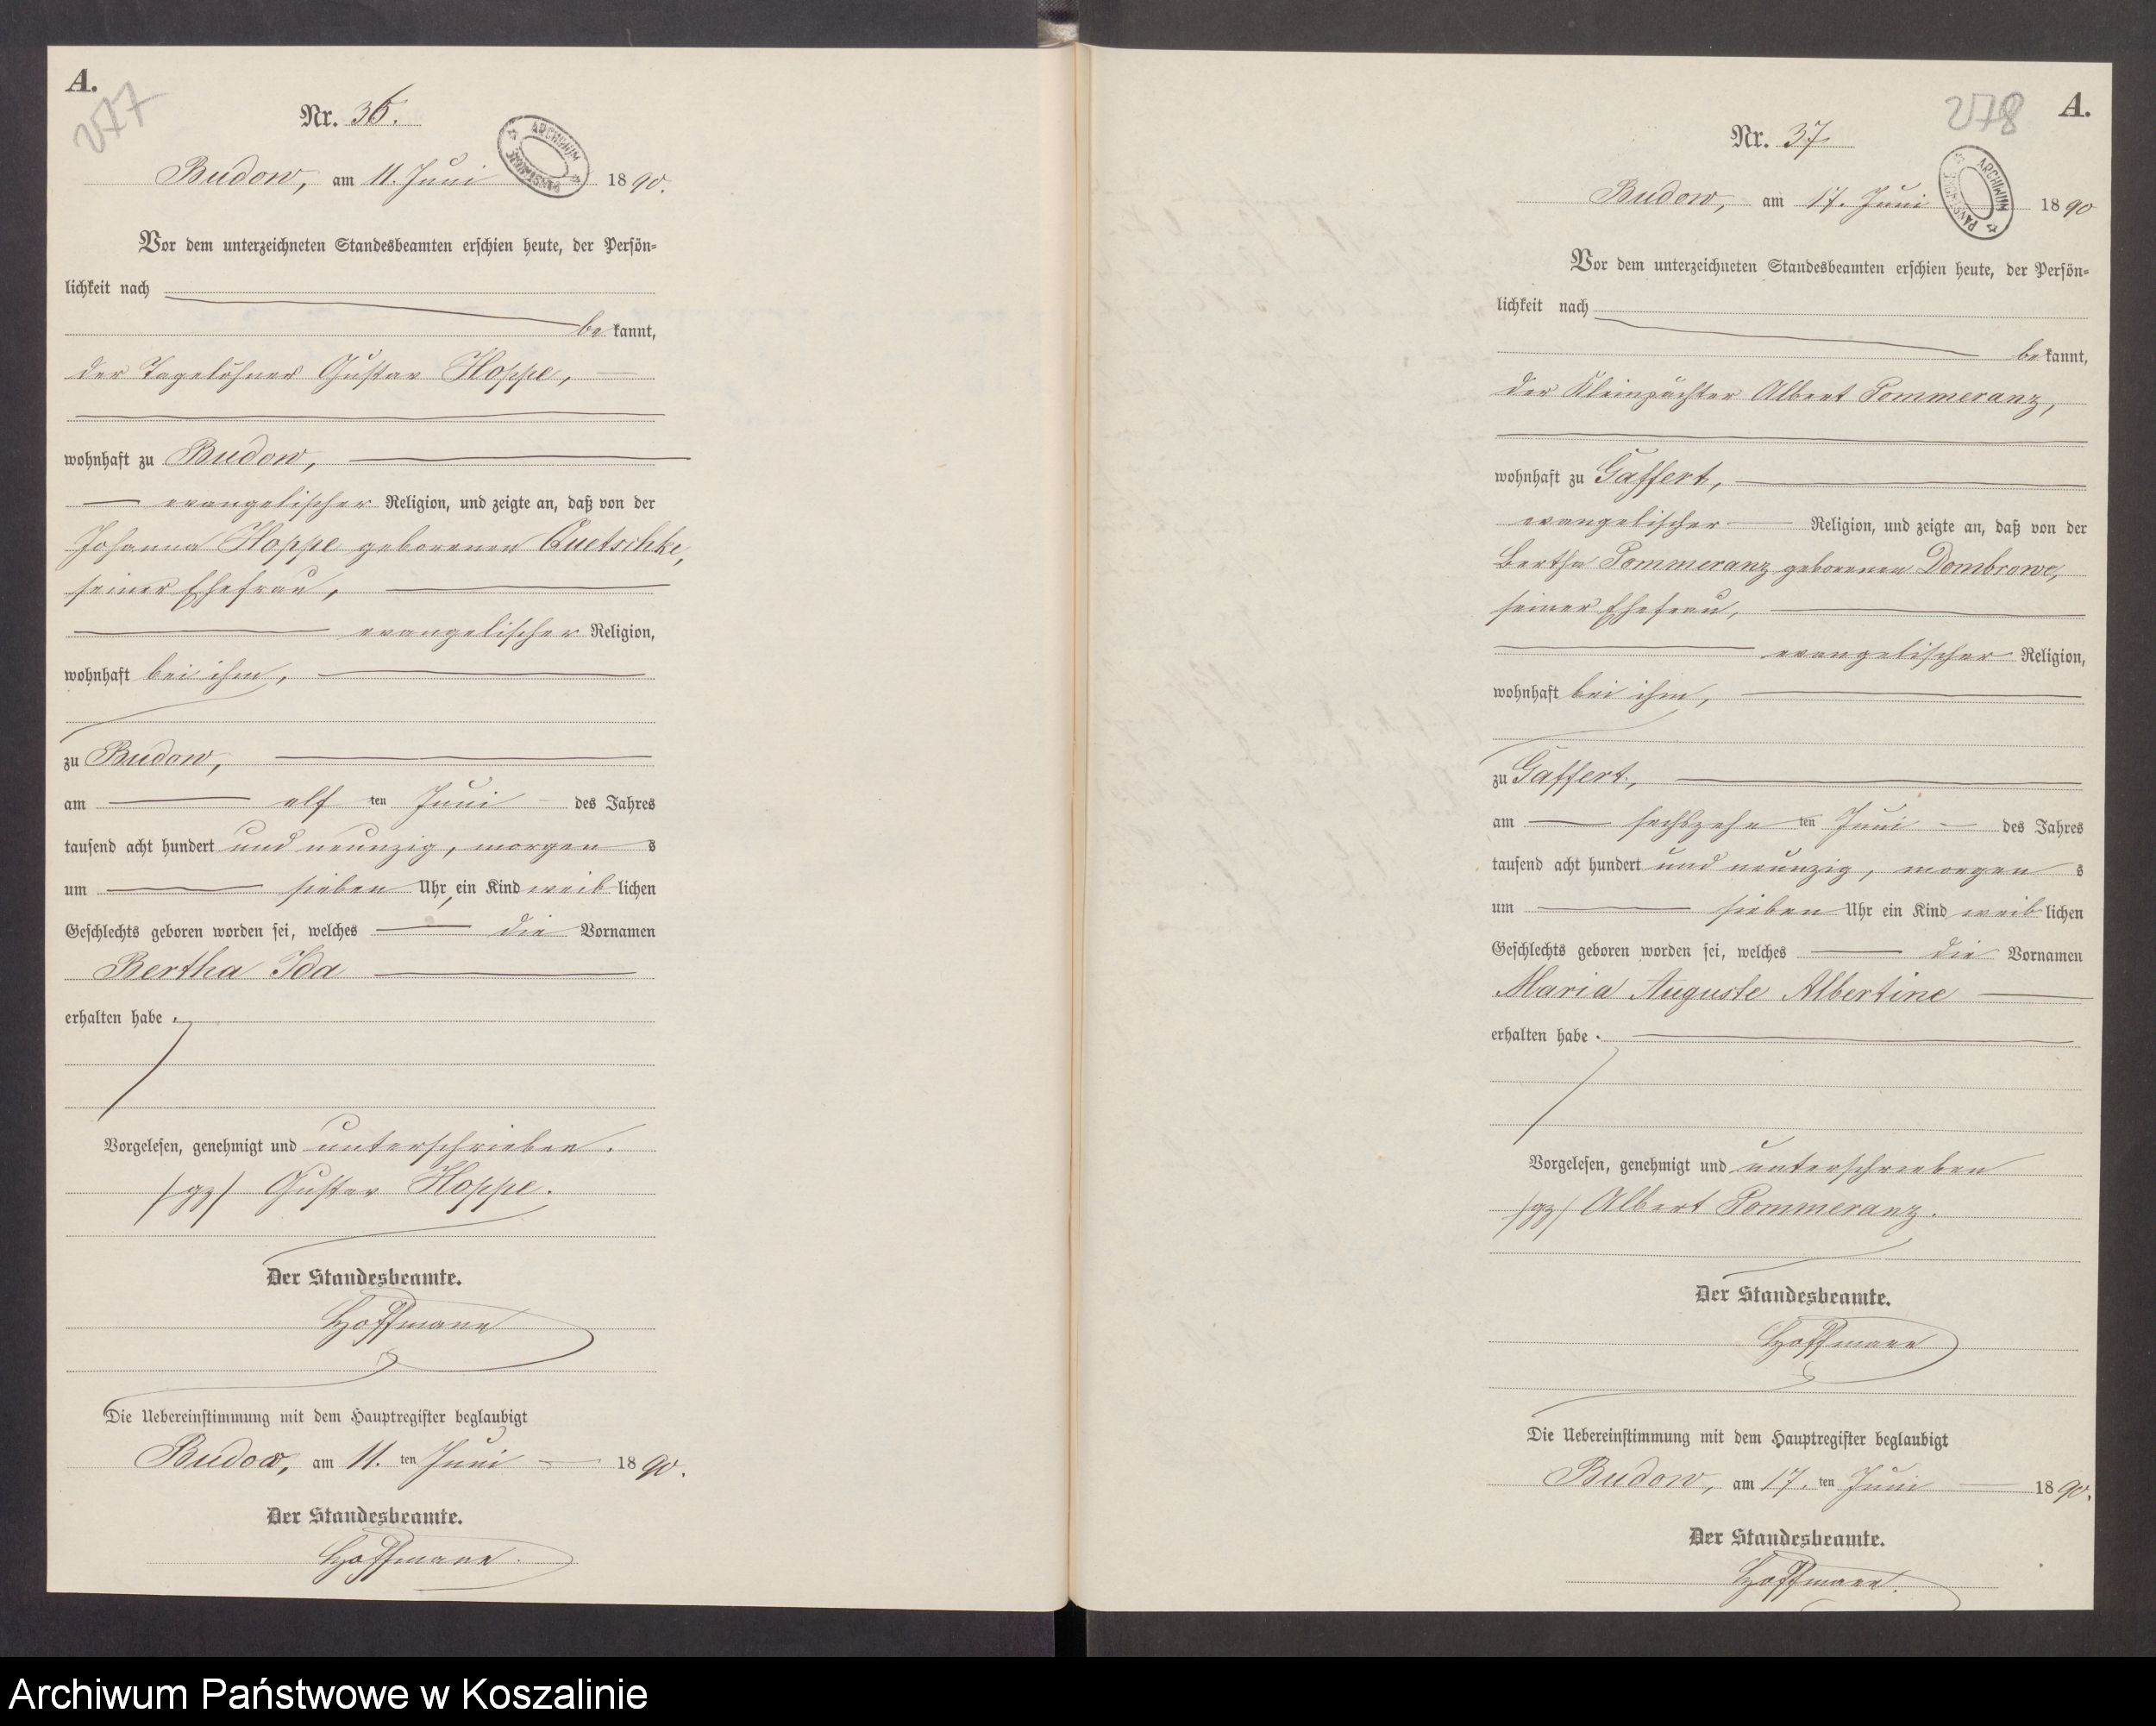 A.
277
Nr. 36.
ARCHIWUM PAŃSTWOWE
Budow, am 11. Juni 1890.
Vor dem unterzeichneten Standesbeamten erschien heute, der Persön-
lichkeit nach
be kannt,
der Tagelöhner Gustav Hoppe,
wohnhaft zu Budow,
evangelischer Religion, und zeigte an, daß von der
Johanna Hoppe geborenen Quetschke,
seiner Ehefrau,
evangelischer Religion,
wohnhaft bei ihm,
zu Budow,
am elf ten Juni des Jahres
tausend acht hundert und neunzig, morgen s
um sieben Uhr, ein Kind weib lichen
Geschlechts geboren worden sei, welches die Vornamen
Bertha Ida
erhalten habe.
Vorgelesen, genehmigt und unterschrieben.
/gz/ Gustav Hoppe.
Der Standesbeamte.
Hoffmann
Die Uebereinstimmung mit dem Hauptregister beglaubigt
Budow, am 11. ten Juni 1890.
Der Standesbeamte.
Hoffmann.
278
A.
Nr. 37
ARCHIWUM PAŃSTWOWE
Budow, am 17. Juni 1890
Vor dem unterzeichneten Standesbeamten erschien heute, der Persön-
lichkeit nach
be kannt,
der Kleinpächter Albert Pommeranz,
wohnhaft zu Gaffert,
evangelischer Religion, und zeigte an, daß von der
Bertha Pommeranz geborenen Dombrowe,
seiner Ehefrau,
evangelischer Religion,
wohnhaft bei ihm,
zu Gaffert,
am sechszehn ten Juni des Jahres
tausend acht hundert und neunzig, morgen s
um sieben Uhr ein Kind weib lichen
Geschlechts geboren worden sei, welches die Vornamen
Maria Auguste Albertine
erhalten habe.
Vorgelesen, genehmigt und unterschrieben
/gz/ Albert Pommeranz.
Der Standesbeamte.
Hoffmann
Die Uebereinstimmung mit dem Hauptregister beglaubigt
Budow, am 17. ten Juni 1890.
Der Standesbeamte.
Hoffmann.
Archiwum Państwowe w Koszalinie